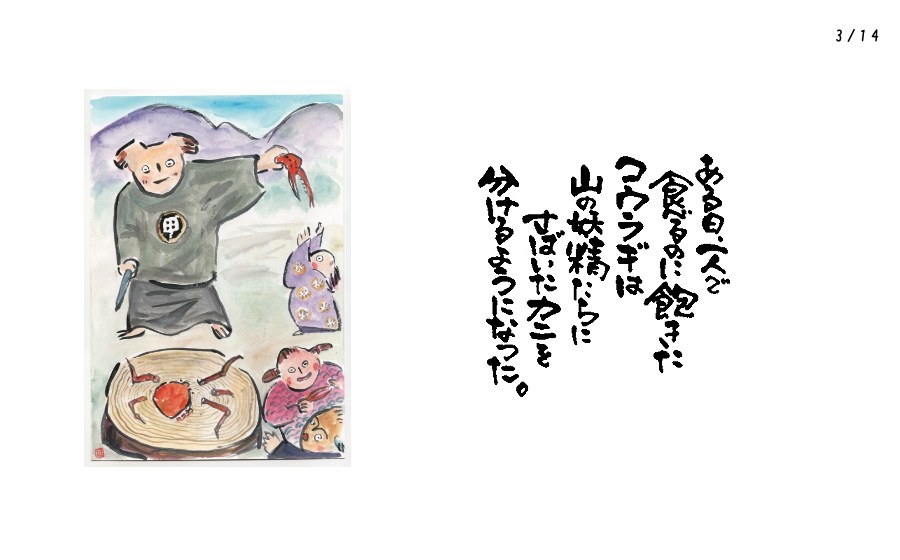 3/14
ある日、一人で
食べるのに飽きた
コウラギは
山の妖精たちに
さばいたカニを
分けるようになった。
甲